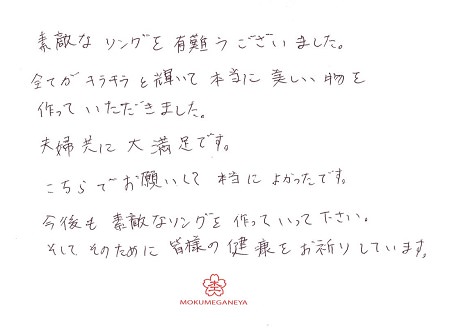 素敵な リングを 有難うございました。
全てがキラキラと輝いて 本当に 美しい物を
作っていただきました。
夫婦共に 大満足です。
こちらでお願いして 本当に よかったです。
今後も 素敵なリングを 作っていって下さい。
そして そのために 皆様の 健康を お祈りしています。
MOKUMEGANEYA